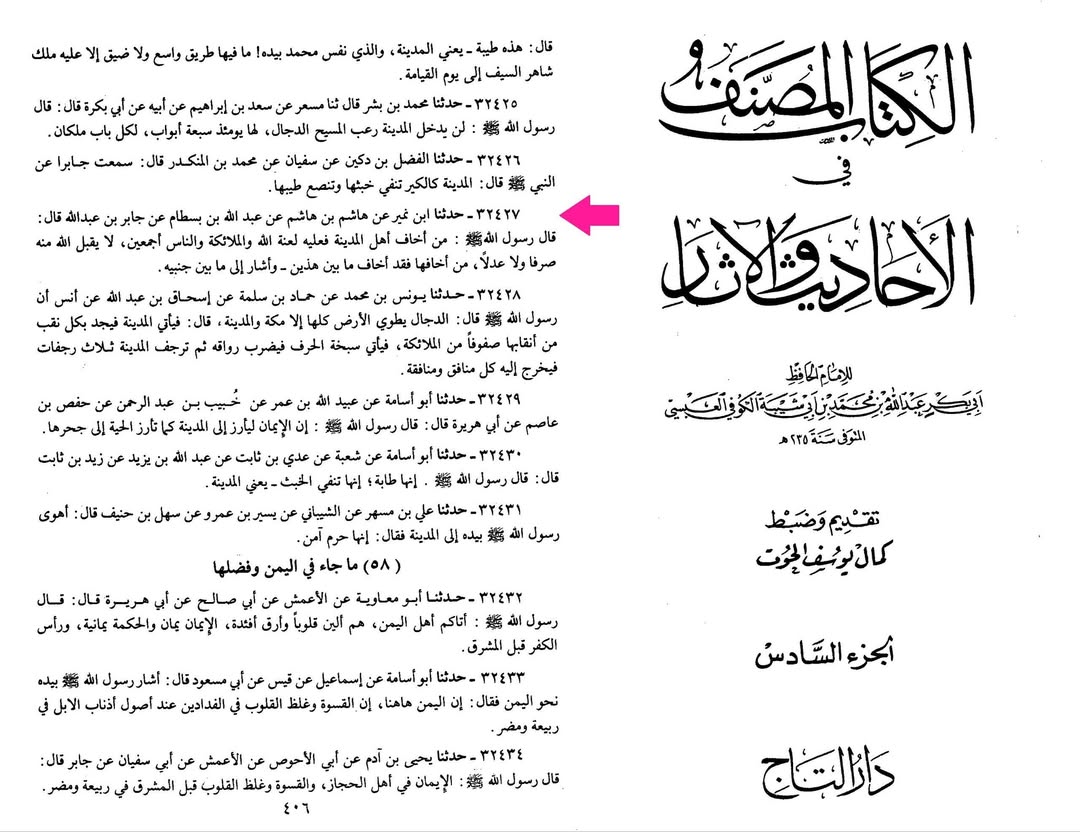 الكِتَابُ المُصَنَّف
في
الأحَاديث وَالآثار
للإمَام الحَافِظ
أبي بَكر عَبْدالله بْن مُحمَّد بْن أبي شَيْبَة الكوفي العَبسيّ
المتوَفى سَنَة ٢٣٥ هـ
تقديم وَضَبْط
كمال يُوسُف الحُوت
الجزء السَّادس
دَارُ التَّاج
قال: هذه طيبة ـ يعني المدينة، والذي نفس محمد بيده! ما فيها طريق واسع ولا ضيق إلا عليه ملك
شاهر السيف إلى يوم القيامة.
٣٢٤٢٥ ـ حدثنا محمد بن بشر قال ثنا مسعر عن سعد بن إبراهيم عن أبيه عن أبي بكرة قال: قال
رسول الله ﷺ : لن يدخل المدينة رعب المسيح الدجال، لها يومئذ سبعة أبواب، لكل باب ملكان.
٣٢٤٢٦ ـ حدثنا الفضل بن دكين عن سفيان عن محمد بن المنكدر قال: سمعت جابرا عن
النبي ﷺ قال: المدينة كالكير تنفي خبثها وتنصع طيبها.
٣٢٤٢٧ ـ حدثنا ابن نمير عن هاشم بن هاشم عن عبد الله بن بسطام عن جابر بن عبدالله قال:
قال رسول الله ﷺ : من أخاف أهل المدينة فعليه لعنة الله والملائكة والناس أجمعين، لا يقبل الله منه
صرفا ولا عدلاً، من أخافها فقد أخاف ما بين هذين ـ وأشار إلى ما بين جنبيه.
٣٢٤٢٨ ـ حدثنا يونس بن محمد عن حماد بن سلمة عن إسحاق بن عبد الله عن أنس أن
رسول الله ﷺ قال: الدجال يطوي الأرض كلها إلا مكة والمدينة، قال: فيأتي المدينة فيجد بكل نقب
من أنقابها صفوفاً من الملائكة، فيأتي سبخة الحرف فيضرب رواقه ثم ترجف المدينة ثلاث رجفات
فيخرج إليه كل منافق ومنافقة.
٣٢٤٢٩ ـ حدثنا أبو أسامة عن عبيد الله بن عمر عن خُبيب بن عبد الرحمن عن حفص بن
عاصم عن أبي هريرة قال: قال رسول الله ﷺ : إن الإيمان ليأرز إلى المدينة كما تأرز الحية إلى جحرها.
٣٢٤٣٠ ـ حدثنا أبو أسامة عن شعبة عن عدي بن ثابت عن عبد الله بن يزيد عن زيد بن ثابت
قال: قال رسول الله ﷺ . إنها طابة؛ إنها تنفي الخبث ـ يعني المدينة.
٣٢٤٣١ ـ حدثنا علي بن مسهر عن الشيباني عن يسير بن عمرو عن سهل بن حنيف قال: أهوى
رسول الله ﷺ بيده إلى المدينة فقال: إنها حرم آمن.
(٥٨) ما جاء في اليمن وفضلها
٣٢٤٣٢ ـ حدثنا أبو معاوية عن الأعمش عن أبي صالح عن أبي هريرة قال: قال
رسول الله ﷺ : أتاكم أهل اليمن، هم ألين قلوباً وأرق أفئدة، الإيمان يمان والحكمة يمانية، ورأس
الكفر قبل المشرق.
٣٢٤٣٣ ـ حدثنا أبو أسامة عن إسماعيل عن قيس عن أبي مسعود قال: أشار رسول الله ﷺ بيده
نحو اليمن فقال: إن اليمن هاهنا، إن القسوة وغلظ القلوب في الفدادين عند أصول أذناب الابل في
ربيعة ومضر.
٣٢٤٣٤ ـ حدثنا يحيى بن آدم عن أبي الأحوص عن الأعمش عن أبي سفيان عن جابر قال:
قال رسول الله ﷺ: الإيمان في أهل الحجاز، والقسوة وغلظ القلوب قبل المشرق في ربيعة ومضر.
٤٠٦